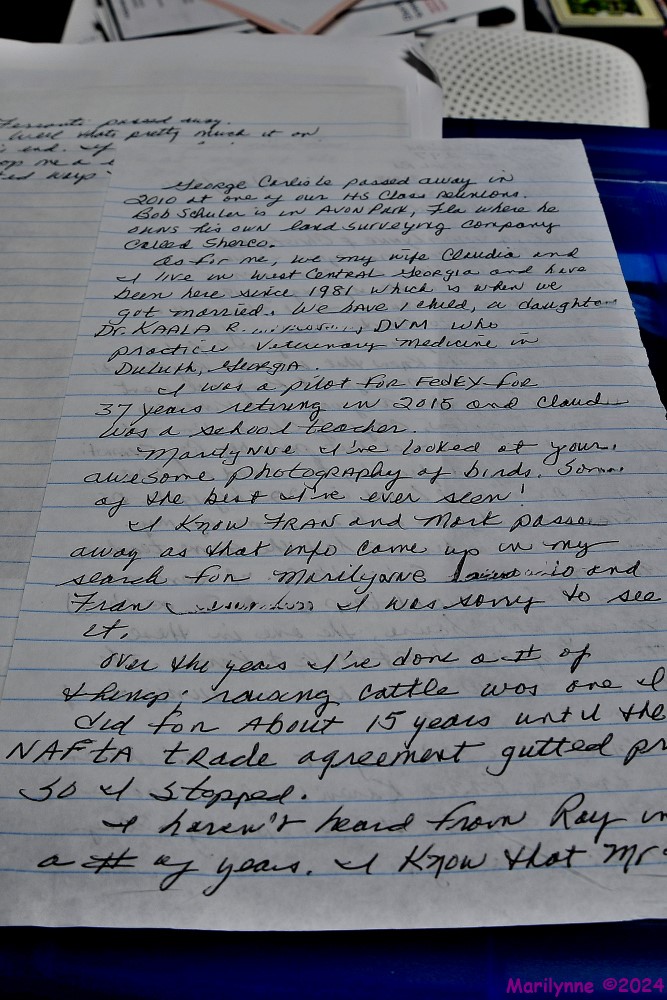 Ferranti passed away.
Well thats pretty much it on
end. If
me a
George Carlisle passed away in
2010 at one of our HS Class reunions.
Bob Schuler is in AVON PARK, Fla where he
owns his own land surveying company
called Sherco.
As for me, we my wife Claudia and
I live in West Central Georgia and have
been here since 1981 which is when we
got married. We have 1 child, a daughter
Dr. KAALA R. , DVM who
practices Veterinary medicine in
DuLuth, Georgia.
I was a pilot for FedEX for
37 years retiring in 2015 and Claud
was a school teacher.
MarilyNNe I've looked at your
awesome photography of birds. Some
of the best I've ever seen!
I know FRAN and Mark passe
away as that info came up in my
search for Marilynne and
Fran I was sorry to see
it.
Over the years I've done a # of
things; raising cattle was one I
did for About 15 years until the
NAFtA trade agreement gutted pr
so I stopped.
I haven't heard from Ray in
a # of years. I know that Mr
Marilynne ©2024